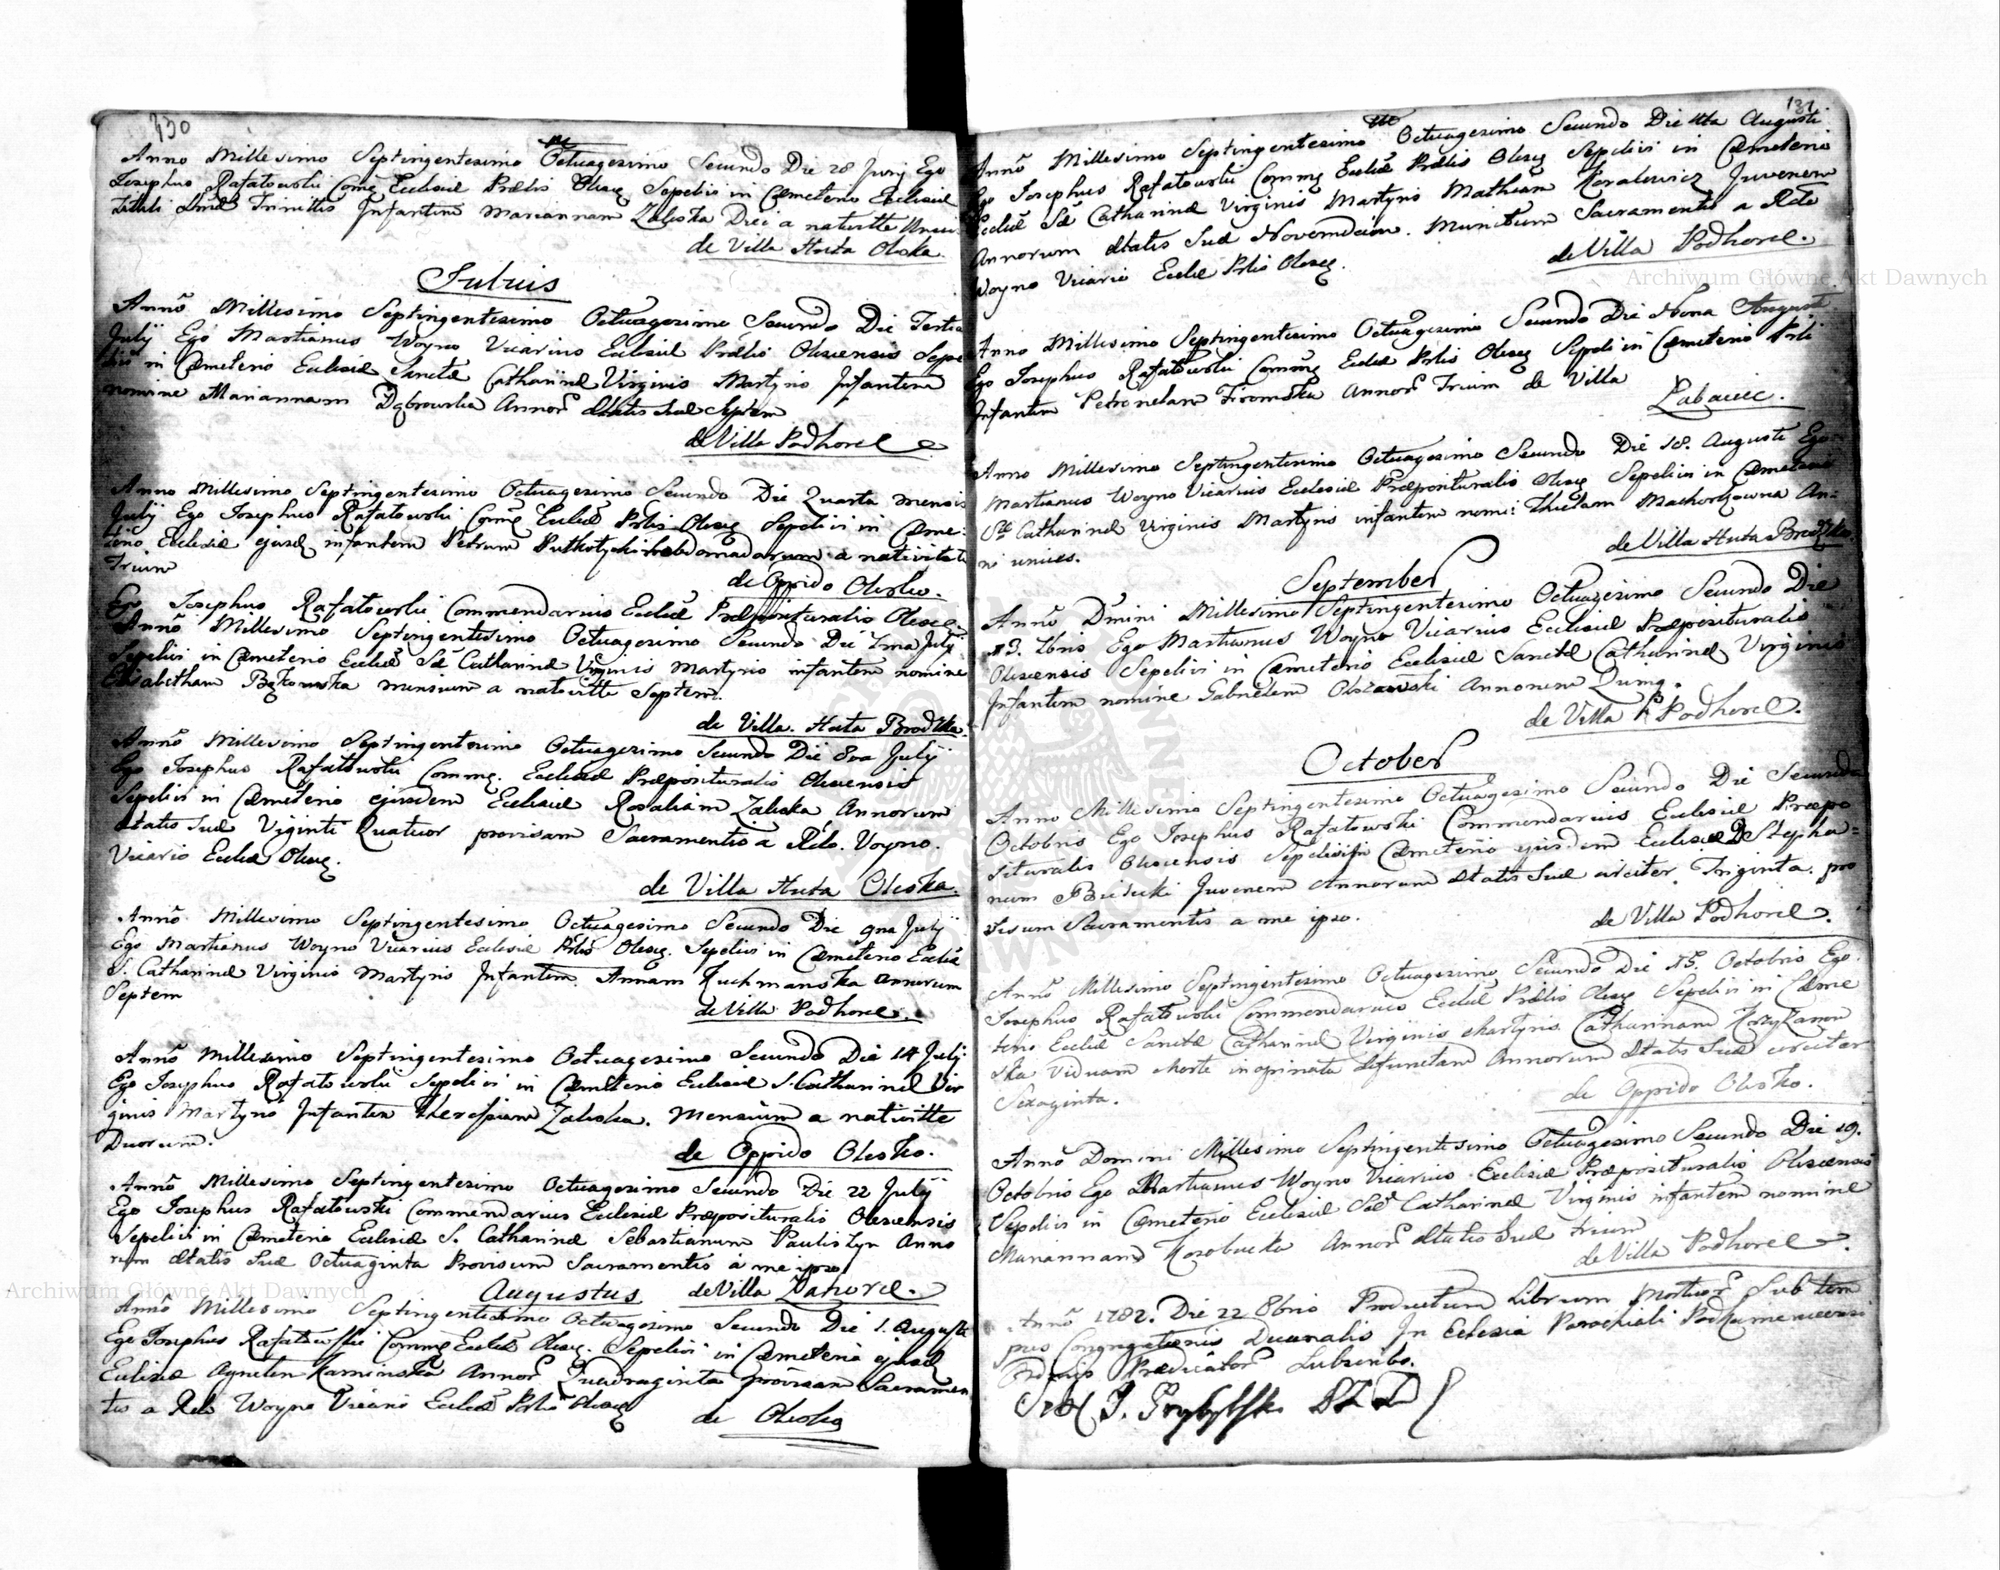 130
Anno Millesimo Septingentesimo Octuagesimo Secundo Die 28 Junij Ego
Josephus Rafałowski Comđ Ecclesiæ Prælis Olesc Sepelivi in Cæmeterio Ecclesiæ
tituli Trinittis Infantem Mariannam Zaleska Diei a nativtte
de Villa Huta Oleska.
Julius
Anno Millesimo Septingentesimo Octuagesimo Secundo Die Tertia
July Ego Martianus Woyno Vicarius Ecclesiæ Prælis Olescensis Sepe
livi in Cæmeterio Ecclesiæ Sanctæ Catharinæ Virginis Martyris Infantem
nomine Mariannam Dąbrowska Annor ætatis suæ Septem
de Villa Podhorce
Anno Millesimo Septingentesimo Octuagesimo Secundo Die Quarta mensis
July Ego Josephus Rafałowski Ecclæ Prlis Olesc Sepelivi in Cæme-
terio Ecclesiæ ejusd infantem Petrum hebdomadarum a nativitate
Trium
de Oppido Olesko.
Ego Josephus Rafałowski Commendarius Ecclæ Præposituralis Olesce
Anno Millesimo Septingentesimo Octuagesimo Secundo Die 7ma July
Sepelivi in Cæmeterio Ecclæ Sæ Catharinæ Virginis Martyris infantem nomine
Elisabetham Bąkowska mensium a nativtte Septem.
de Villa Huta Brodzka.
Anno Millesimo Septingentesimo Octuagesimo Secundo Die 8va July
Ego Josephus Rafałowski Ecclesiæ Præposituralis Olescensis
Sepelivi in Cæmeterio ejusdem Ecclesiæ Rosaliam Zaleska Annorum
ætatis suæ Viginti Quatuor provisam Sacramentis a Rdo. Woyno.
Vicario Ecclæ Olesc.
de Villa Huta Oleska.
Anno Millesimo Septingentesimo Octuagesimo Secundo Die 9na July
Ego Martianus Woyno Vicarius Ecclesiæ Prlis Olesc. Sepelivi in Cæmeterio Ecclæ
S. Catharinæ Virginis Martyris Infantem Annam Kuchmanska annorum
Septem
de Villa Podhorce.
Anno Millesimo Septingentesimo Octuagesimo Secundo Die 14 July
Ego Josephus Rafałowski Sepelivi in Cæmeterio Ecclesiæ S. Catharinæ Vir
ginis Martyris Infantem Theressiam Zaleska. Mensium a nativtte
Duorum.
de Oppido Olesko.
Anno Millesimo Septingentesimo Octuagesimo Secundo Die 22 July
Ego Josephus Rafałowski Commendarius Ecclesiæ Præposituralis Olescensis
Sepelivi in Cæmeterio Ecclesiæ S. Catharinæ Sebastianum Anno
rum ætatis suæ Octuaginta Provisum Sacramentis a me ipso
Augustus de Villa
Anno Millesimo Septingentesimo Octuagesimo Secundo Die 1. Augusti
Ego Josephus Rafałowski Ecclæ Olesc. Sepelivi in Cæmeterio ejusd
Ecclesiæ Agneten Kaminska Annor Quadraginta provisam Sacramen
tis a Rdo Woyno Vicario Ecclæ Prlis Olesc
de Olesko
131
Anno Millesimo Septingentesimo Octuagesimo Secundo Die 4ta Augusti
Ego Josephus Rafałowski Ecclæ Prælis Olesc Sepelivi in Cæmeterio
Ecclæ Sæ Catharinæ Virginis Martyris Mathiam Juvenem
Annorum ætatis suæ Novemdecim. Munitum Sacramentis a Rdo
Woyno Vicario Ecclæ Prlis Olesc.
de Villa Podhorce.
Anno Millesimo Septingentesimo Octuagesimo Secundo Die Nona Augusti
Ego Josephus Rafałowski Ecclæ Prlis Olesc Sepelivi in Cæmeterio Prli
Infantem Petronelam Annor Trium de Villa
Anno Millesimo Septingentesimo Octuagesimo Secundo Die 18. Augusti Ego
Martianus Woyno Vicarius Ecclesiæ Præposituralis Olesc Sepelivi in Cæmeterio
Stæ Catharinæ Virginis Martyris infantem nomi: An-
ni unius.
de Villa Huta Brodzka.
September
Anno Dmini Millesimo Septingentesimo Octuagesimo Secundo Die
7bris Ego Martianus Woyno Vicarius Ecclesiæ Præposituralis
Olescensis Sepelivi in Cæmeterio Ecclesiæ Sanctæ Catharinæ Virginis
Infantem nomine Gabrielem Olszewski Annorum Quinq.
de Villa Podhorce.
October
Anno Millesimo Septingentesimo Octuagesimo Secundo Die Secunda
Octobris Ego Josephus Rafałowski Commendarius Ecclesiæ Præpo
situralis Olescensis Sepelivi in Cæmeterio ejusdem Ecclesiæ Stepha-
num Juvenem Annorum ætatis suæ circiter Triginta. pro
visum Sacramentis a me ipso.
de Villa Podhorce.
Anno Millesimo Septingentesimo Octuagesimo Secundo Die 15. Octobris Ego
Josephus Rafałowski Commendarius Ecclæ Prælis Olesc Sepelivi in Cæme
terio Ecclæ Sanctæ Catharinæ Virginis Martyris Catharinam
ska Viduam Morte inopinata defunctam Annorum ætatis suæ circiter
Sexaginta.
de Oppido Olesko.
Anno Domini Millesimo Septingentesimo Octuagesimo Secundo Die 19.
Octobris Ego Martianus Woyno Vicarius Ecclesiæ Præposituralis Olescensis
Sepelivi in Cæmeterio Ecclesiæ Catharinæ Virginis infantem nomine
Mariannam Annor ætatis suæ trium
de Villa Podhorce.
Anno 1782. Die 22 8bris Productum Librum Mortuor Sub tem
pus Congregationis Decanalis In Eclesia Parochiali Podkamenecensi
Ordinis Prædicator Subscribo.
Archiwum Główne Akt Dawnych
Archiwum Główne Akt Dawnych